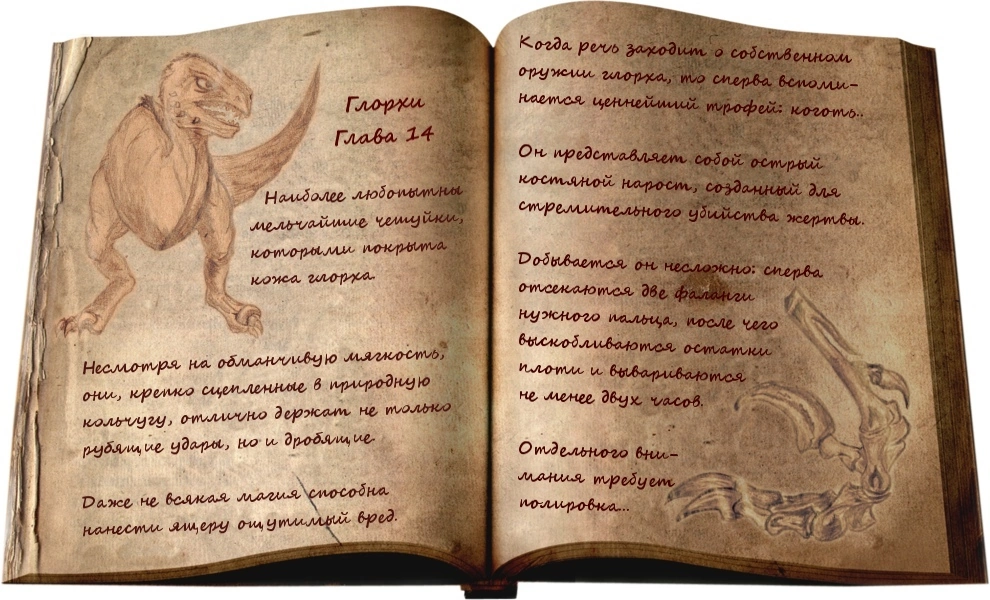 Глорхи
Глава 14
Наиболее любопытны
мельчайшие чешуйки,
которыми покрыта
кожа глорха
Несмотря на обманчивую мягкость,
они, крепко сцепленные в природную
кольчугу, отлично держат не только
рубящие удары, но и дробящие.
Даже не всякая магия способна
нанести ящеру ощутимый вред.
Когда речь заходит о собственном
оружии глорха, то сперва вспоми-
нается ценнейший трофей: коготь..
Он представляет собой острый
костяной нарост, созданный для
стремительного убийства жертвы.
Добывается он несложно: сперва
отсекаются две фаланги
нужного пальца, после чего
выскобливаются остатки
плоти и вывариваются
не менее двух часов.
Отдельного вни-
мания требует
полировка...